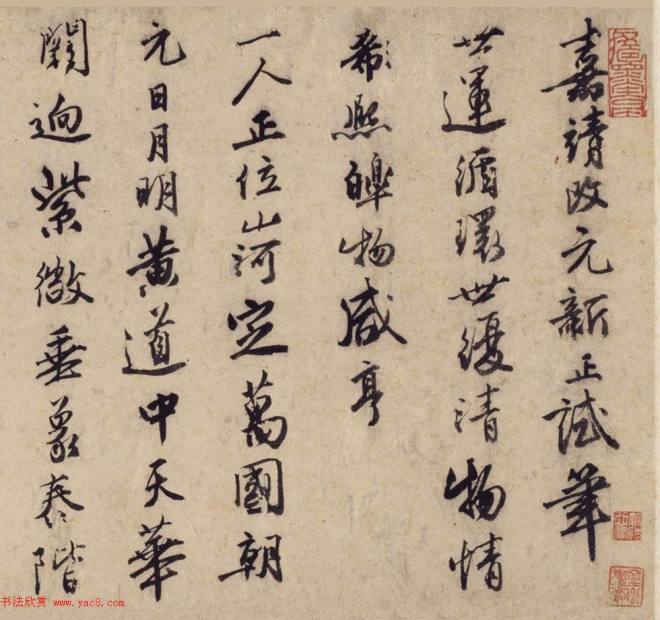 嘉靖改元新正試筆
世運循環世復清物情
希熙皞物咸亨
一人正位山河定萬國朝
元日月明黃道中天華
闕迥紫微垂象泰階
书法欣赏 www.yac8.com